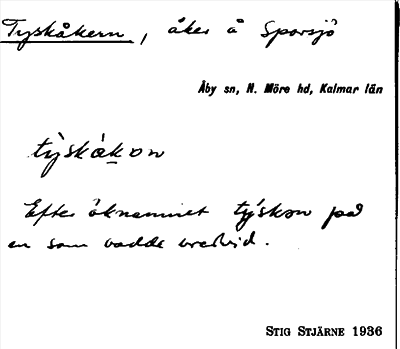 Tyskåkern, åker å Sporsjö
Åby sn, N. Möre hd, Kalmar län
tỳskåkoṇ
Efter öknamnet týskon på
en som hadde bredvid.
STIG STJÄRNE 1936